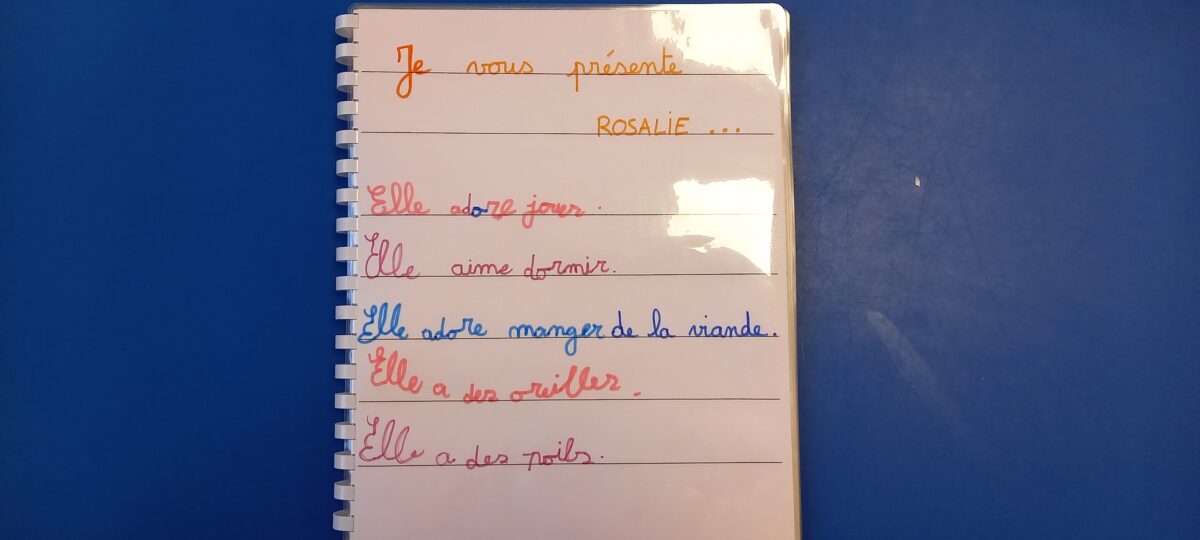 Je vous présente
ROSALIE ...
Elle adore jouer.
Elle aime dormir.
Elle adore manger de la viande.
Elle a des oreilles.
Elle a des poils.